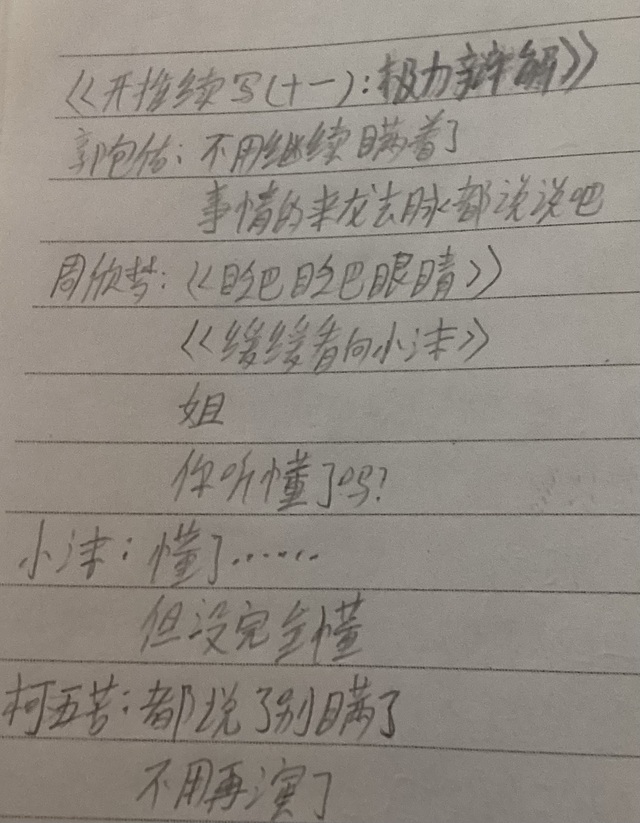 《开推续写(十一):极力辩解》
郭包佑:不用继续瞒着了
事情的来龙去脉都说说吧
周欣梦:《眨巴眨巴眼睛》
《缓缓看向小沫》
姐
你听懂了吗?
小沫:懂了……
但没完全懂
柯五苦:都说了别瞒了
不用再演了